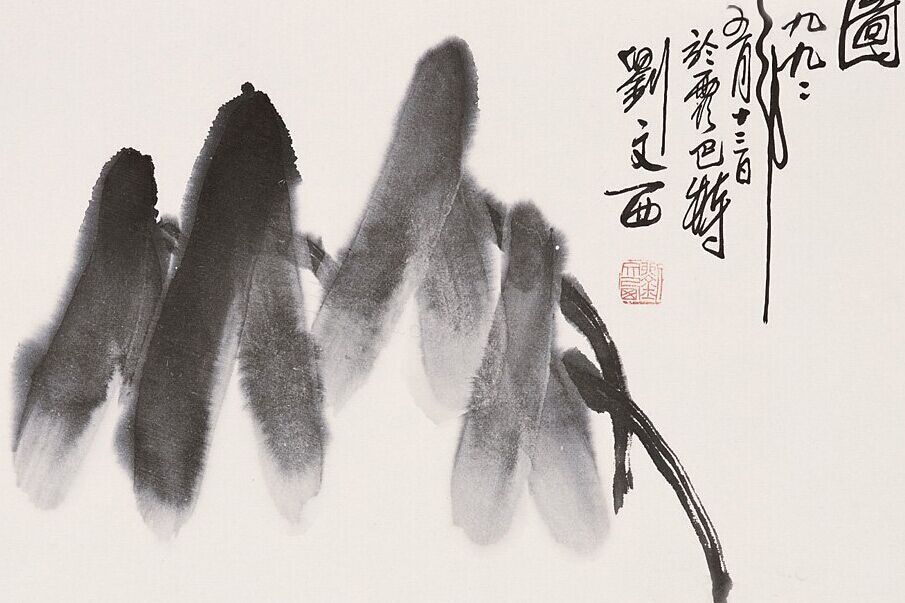 圖
九九二
年
五月十三日
於巴特
劉文西